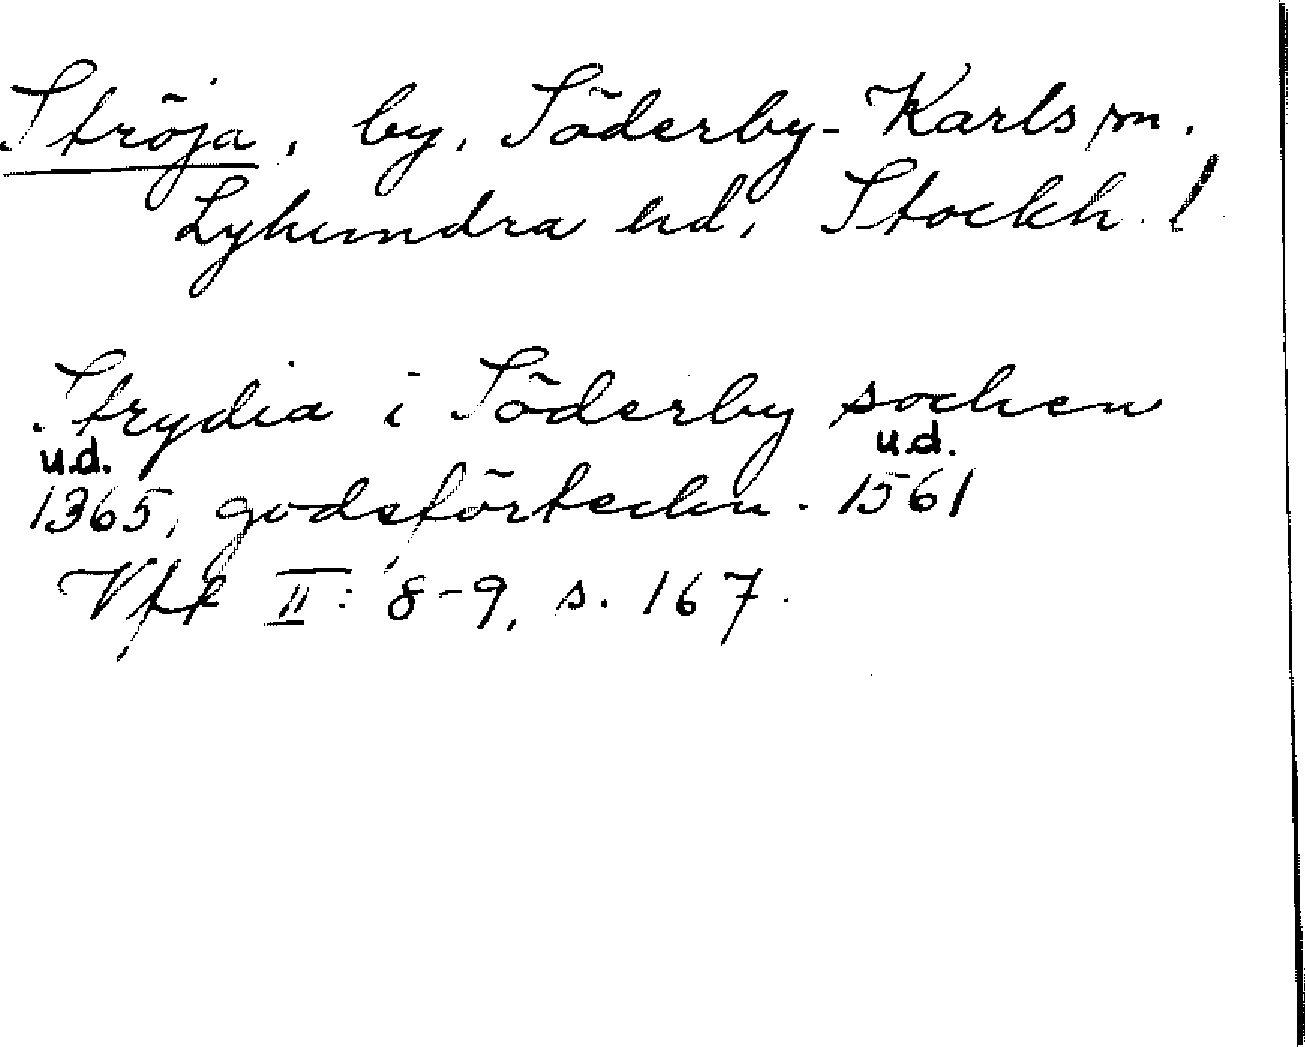 Ströja, by, Söderby-Karls sn.
Lyhundra hd, Stockh. l
Strydia i Söderby sochen
u.d. u.d.
1365, godsförteckn. 1561
Vff II: 8-9, s. 167.